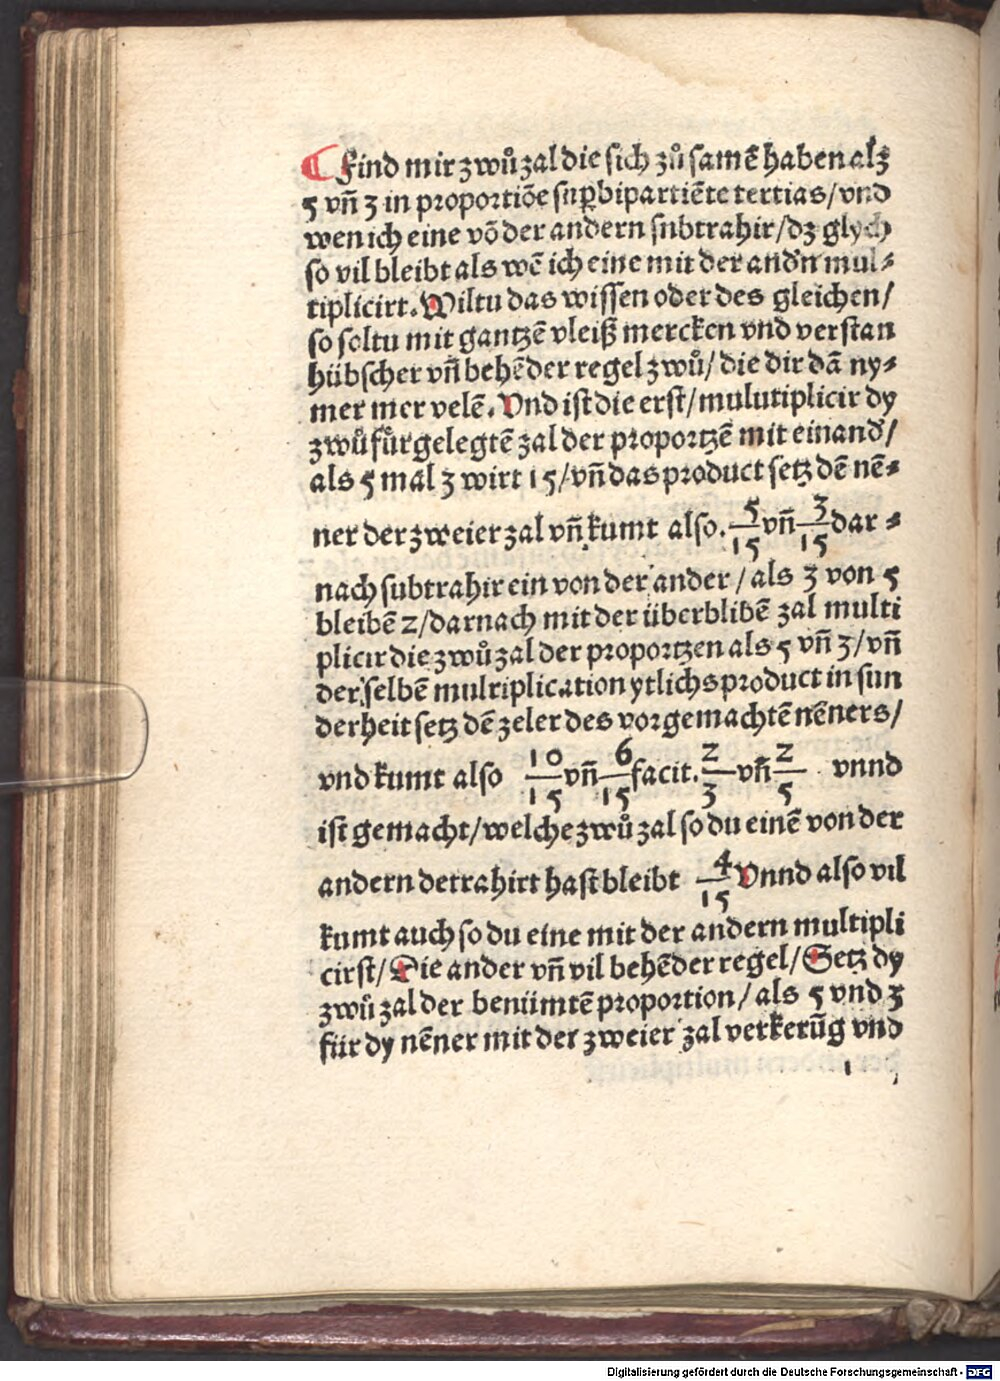 ¶ Find mir zwů zal die sich zů samē haben alz
5 vn̄ 3 in proportiōe suꝑbipartiēte tertias/vnd
wen ich eine vō der andern subtrahir/dz glych
so vil bleibt als wē ich eine mit der and'n mul⸗
tiplicirt. Wiltu das wissen oder des gleichen/
so soltu mit gantzē vleiß mercken vnd verstan
hübscher vn̄ behēder regel zwů/die dir dā ny⸗
mer mer velē. Vnd ist die erst/mulutiplicir dy
zwů fůrgelegtē zal der proportzē mit einand'/
als 5 mal 3 wirt 15/vn̄ das product setz dē nē⸗
ner der zweier zal vn̄ kumt also. 5/15 vn̄ 3/15 dar⸗
nach subtrahir ein von der ander/als 3 von 5
bleibē 2/darnach mit der überblibē zal multi
plicir die zwů zal der proportzen als 5 vn̄ 3/vn̄
der selbē multiplication ytlichs product in sun
derheit setz dē zeler des vorgemachtē nēners/
vnd kumt also 10/15 vn̄ 6/15 facit. 2/3 vn̄ 2/5 vnnd
ist gemacht/welche zwů zal so du einē von der
andern detrahirt hast bleibt 4/15 Vnnd also vil
kumt auch so du eine mit der andern multipli
cirst/Die ander vn̄ vil behēder regel/Setz dy
zwů zal der benümtē proportion/als 5 vnd 3
für dy nēner mit der zweier zal verkerūg vnd
Digitalisierung gefördert durch die Deutsche Forschungsgemeinschaft - DFG